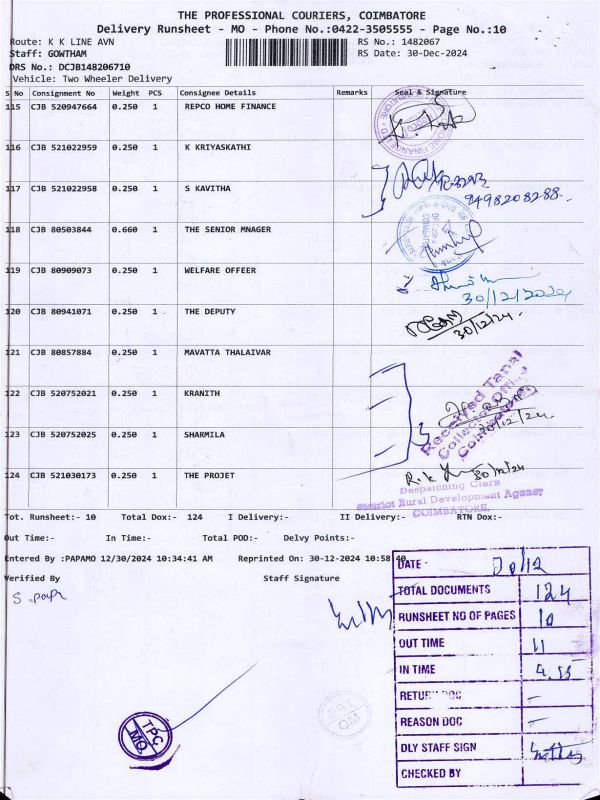 THE PROFESSIONAL COURIERS, COIMBATORE
Delivery Runsheet - MO - Phone No.:0422-3505555 - Page No.:10
Route: K K LINE AVN RS No.: 1482067
Staff: GOWTHAM RS Date: 30-Dec-2024
DRS No.: DCJB148206710
Vehicle: Two Wheeler Delivery
S No Consignment No Weight PCS Consignee Details Remarks Seal & Signature
115 CJB 520947664 0.250 1 REPCO HOME FINANCE
116 CJB 521022959 0.250 1 K KRIYASKATHI
117 CJB 521022958 0.250 1 S KAVITHA
9498208288
118 CJB 80503844 0.660 1 THE SENIOR MNAGER
119 CJB 80909073 0.250 1 WELFARE OFFEER
30/12/2024
120 CJB 80941071 0.250 1 THE DEPUTY
30/12/24
121 CJB 80857884 0.250 1 MAVATTA THALAIVAR
Received Tapal
122 CJB 520752021 0.250 1 KRANITH
30/12/24
123 CJB 520752025 0.250 1 SHARMILA
124 CJB 521030173 0.250 1 THE PROJET
30/12/24
Despatching Clerk
District Rural Development Agency
COIMBATORE.
Tot. Runsheet:- 10 Total Dox:- 124 I Delivery:- II Delivery:- RTN Dox:-
Out Time:- In Time:- Total POD:- Delvy Points:-
Entered By :PAPAMO 12/30/2024 10:34:41 AM Reprinted On: 30-12-2024 10:58
Verified By Staff Signature
DATE - 30/12
TOTAL DOCUMENTS 124
RUNSHEET NO OF PAGES 10
OUT TIME 11
IN TIME 4.55
RETURN DOC -
REASON DOC -
DLY STAFF SIGN
CHECKED BY
TPC
MO